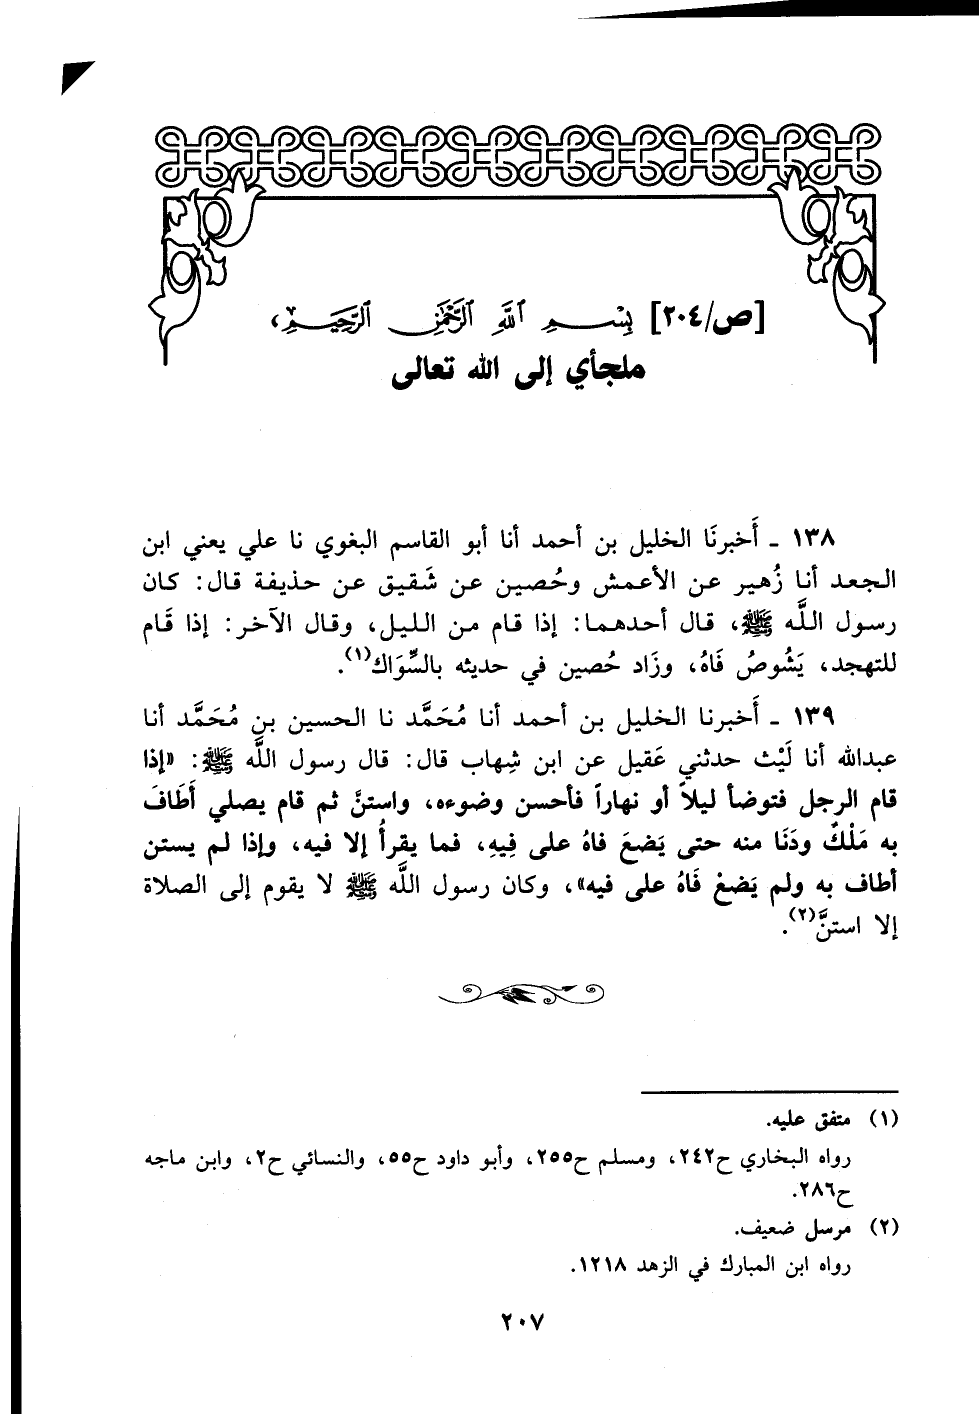 [ص/٢٠٤] بِسْمِ اللَّهِ الرَّحْمَٰنِ الرَّحِيمِ،
ملجأي إلى الله تعالى
١٣٨ ـ أَخبرنَا الخليل بن أحمد أنا أبو القاسم البغوي نا علي يعني ابن
الجعد أنا زُهير عن الأعمش وحُصين عن شَقيق عن حذيفة قال: كان
رسول اللَّه ﷺ، قال أحدهما: إذا قام من الليل، وقال الآخر: إذا قَام
للتهجد، يَشُوصُ فَاهُ، وزَاد حُصين في حديثه بالسِّوَاك(١).
١٣٩ ـ أَخبرنا الخليل بن أحمد أنا مُحَمَّد نا الحسين بن مُحَمَّد أنا
عبدالله أنا لَيْث حدثني عَقيل عن ابن شِهاب قال: قال رسول اللَّه ﷺ: «إذا
قام الرجل فتوضأ ليلاً أو نهاراً فأحسن وضوءه، واستنَّ ثم قام يصلي أَطَافَ
به مَلْكٌ ودَنَا منه حتى يَضعَ فاهُ على فِيهِ، فما يقرأُ إلا فيه، وإذا لم يستن
أطاف به ولم يَضعْ فَاهُ على فيه»، وكان رسول اللَّه ﷺ لا يقوم إلى الصلاة
إلا استنَّ(٢).
(١) متفق عليه.
رواه البخاري ح٢٤٢، ومسلم ح٢٥٥، وأبو داود ح٥٥، والنسائي ح٢، وابن ماجه
ح٢٨٦.
(٢) مرسل ضعيف.
رواه ابن المبارك في الزهد ١٢١٨.
٢٠٧